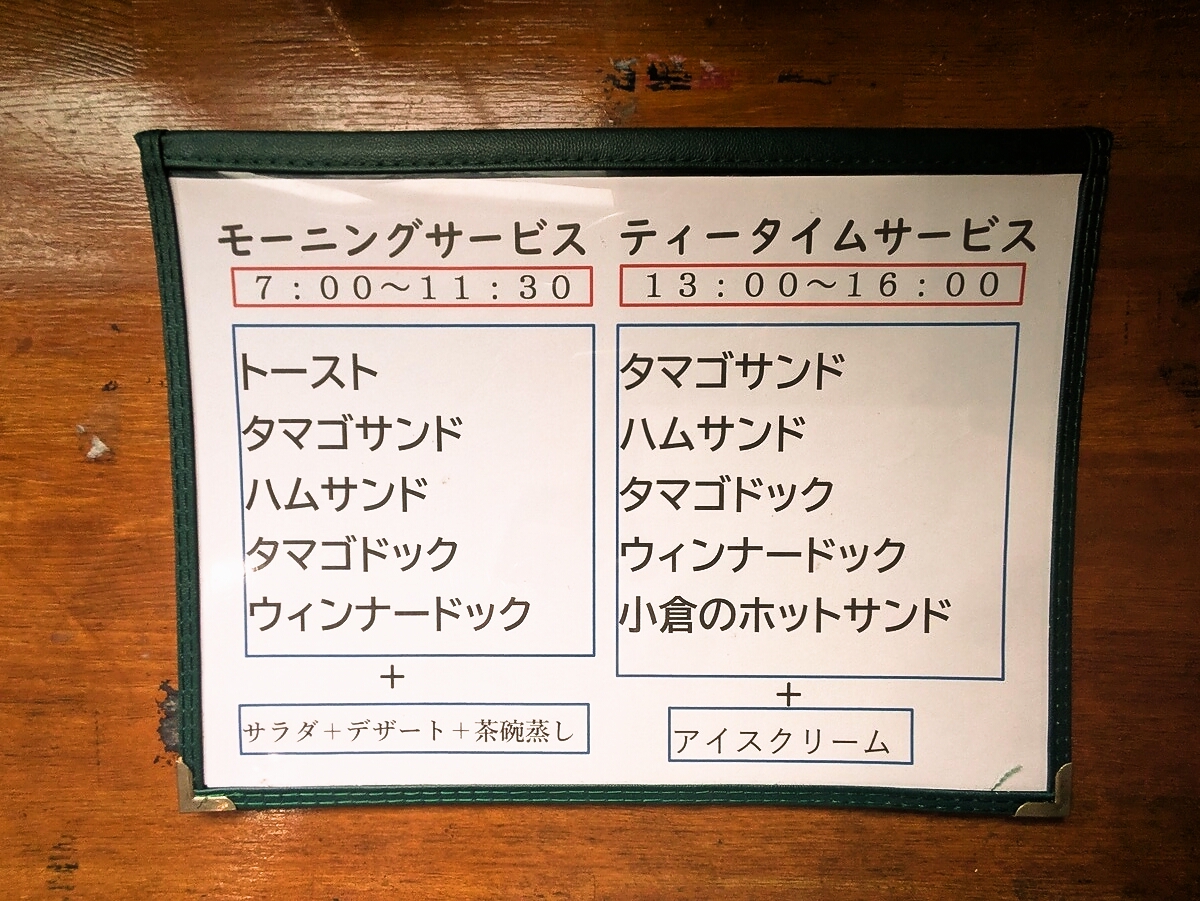 モーニングサービス
7：00～11：30
トースト
タマゴサンド
ハムサンド
タマゴドック
ウィンナードック
＋
サラダ＋デザート＋茶碗蒸し
ティータイムサービス
13：00～16：00
タマゴサンド
ハムサンド
タマゴドック
ウィンナードック
小倉のホットサンド
＋
アイスクリーム